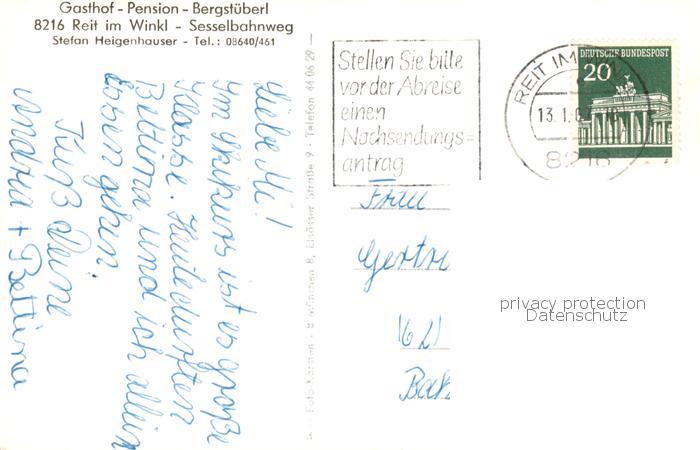 Gasthof - Pension - Bergstüberl
8216 Reit im Winkl - Sesselbahnweg
Stefan Heigenhauser - Tel.: 08640/461
Liebe Mi!
Im Skikurs ist es große
Klasse. Heute durften
Bettina und ich allein
Essen gehen.
Kuß Deine
Andrea + Bettina
Foto-Kersten - 8 München 8, Elsässer Straße 9 - Telefon 44 06 29
Stellen Sie bitte
vor der Abreise
einen
Nachsendungs=
antrag
REIT IM
13.1.
8216
DEUTSCHE BUNDESPOST
20
Frau
Gertr
(62)
privacy protection
Datenschutz